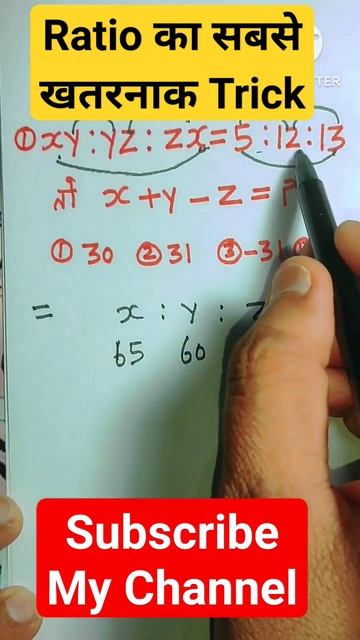 Ratio का सबसे
खतरनाक Trick
① xy : yz : zx = 5 : 12 : 13
x + y - z = ?
① 30 ② 31 ③ -31
= x : y : z
65 60
Subscribe
My Channel